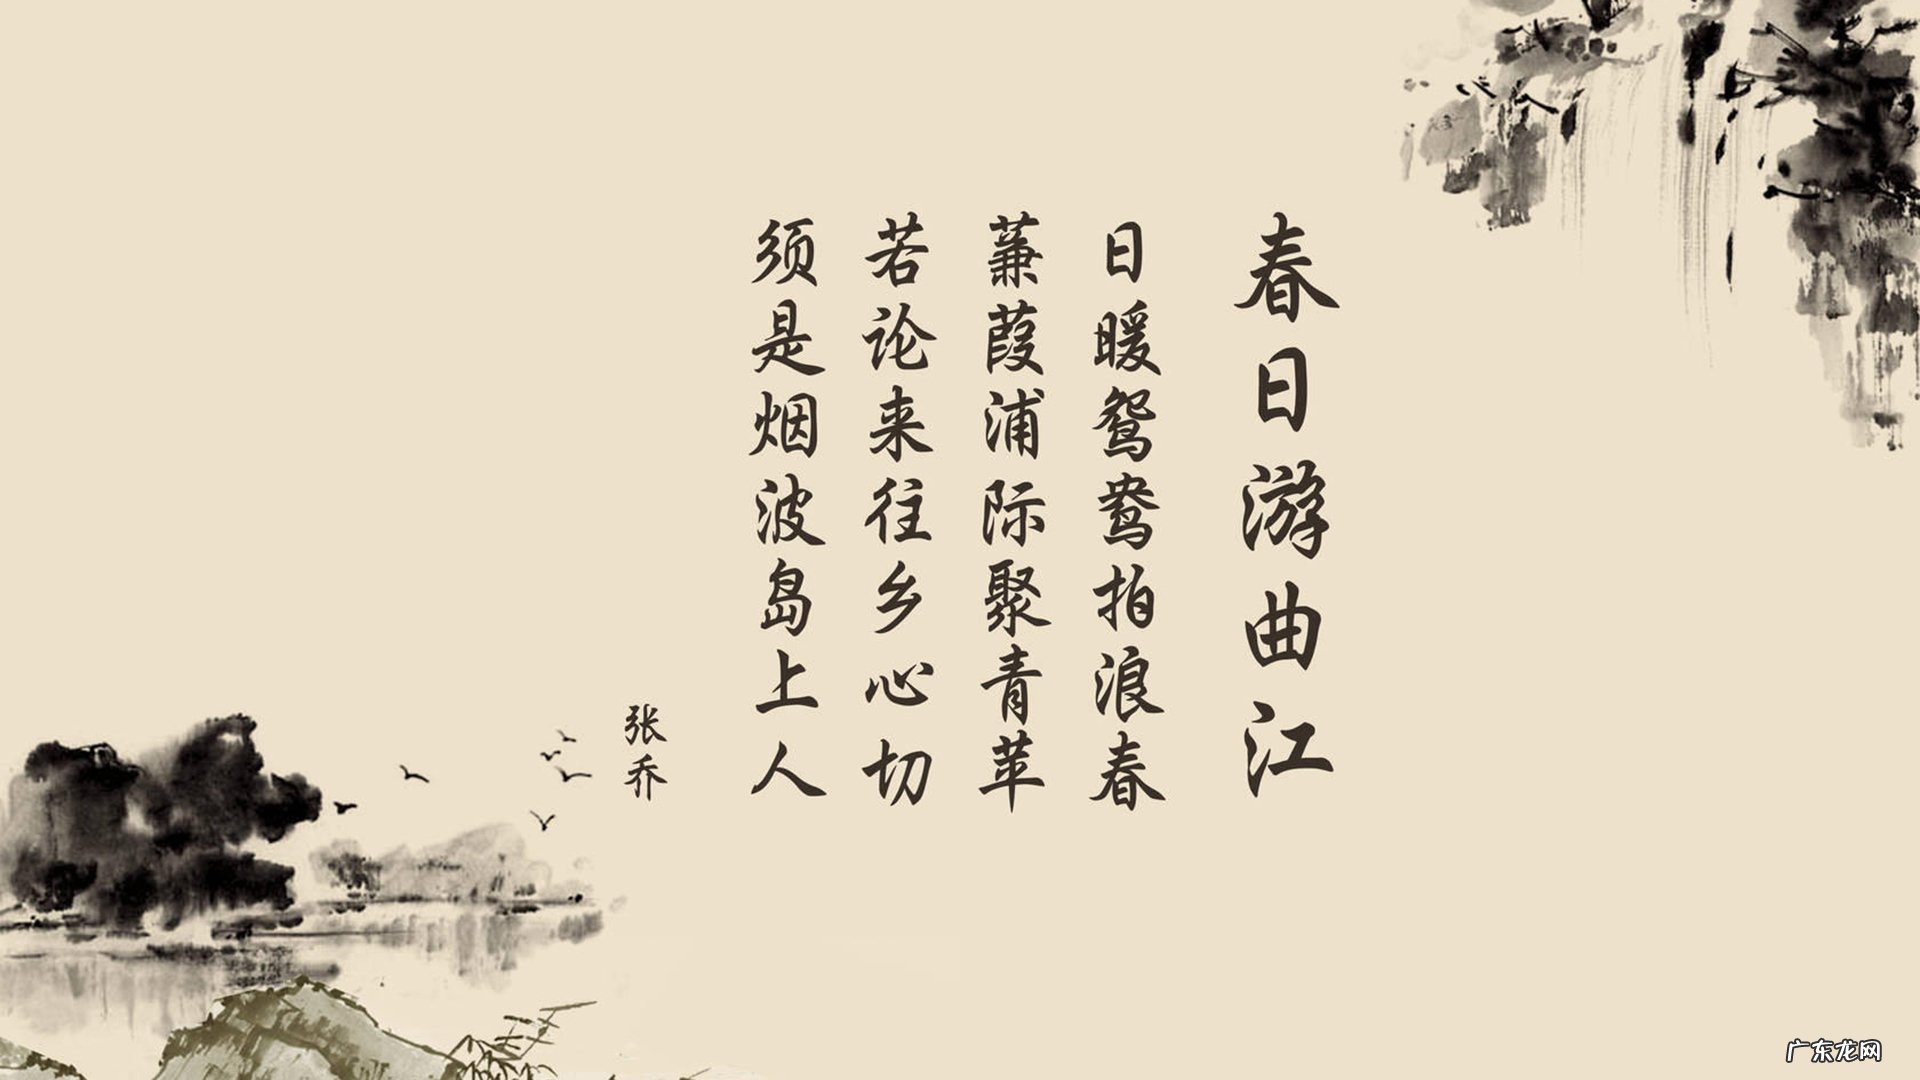 春日游曲江
日暖鸳鸯拍浪春
蒹葭浦际聚青苹
若论来往乡心切
须是烟波岛上人
张乔
广东龙网